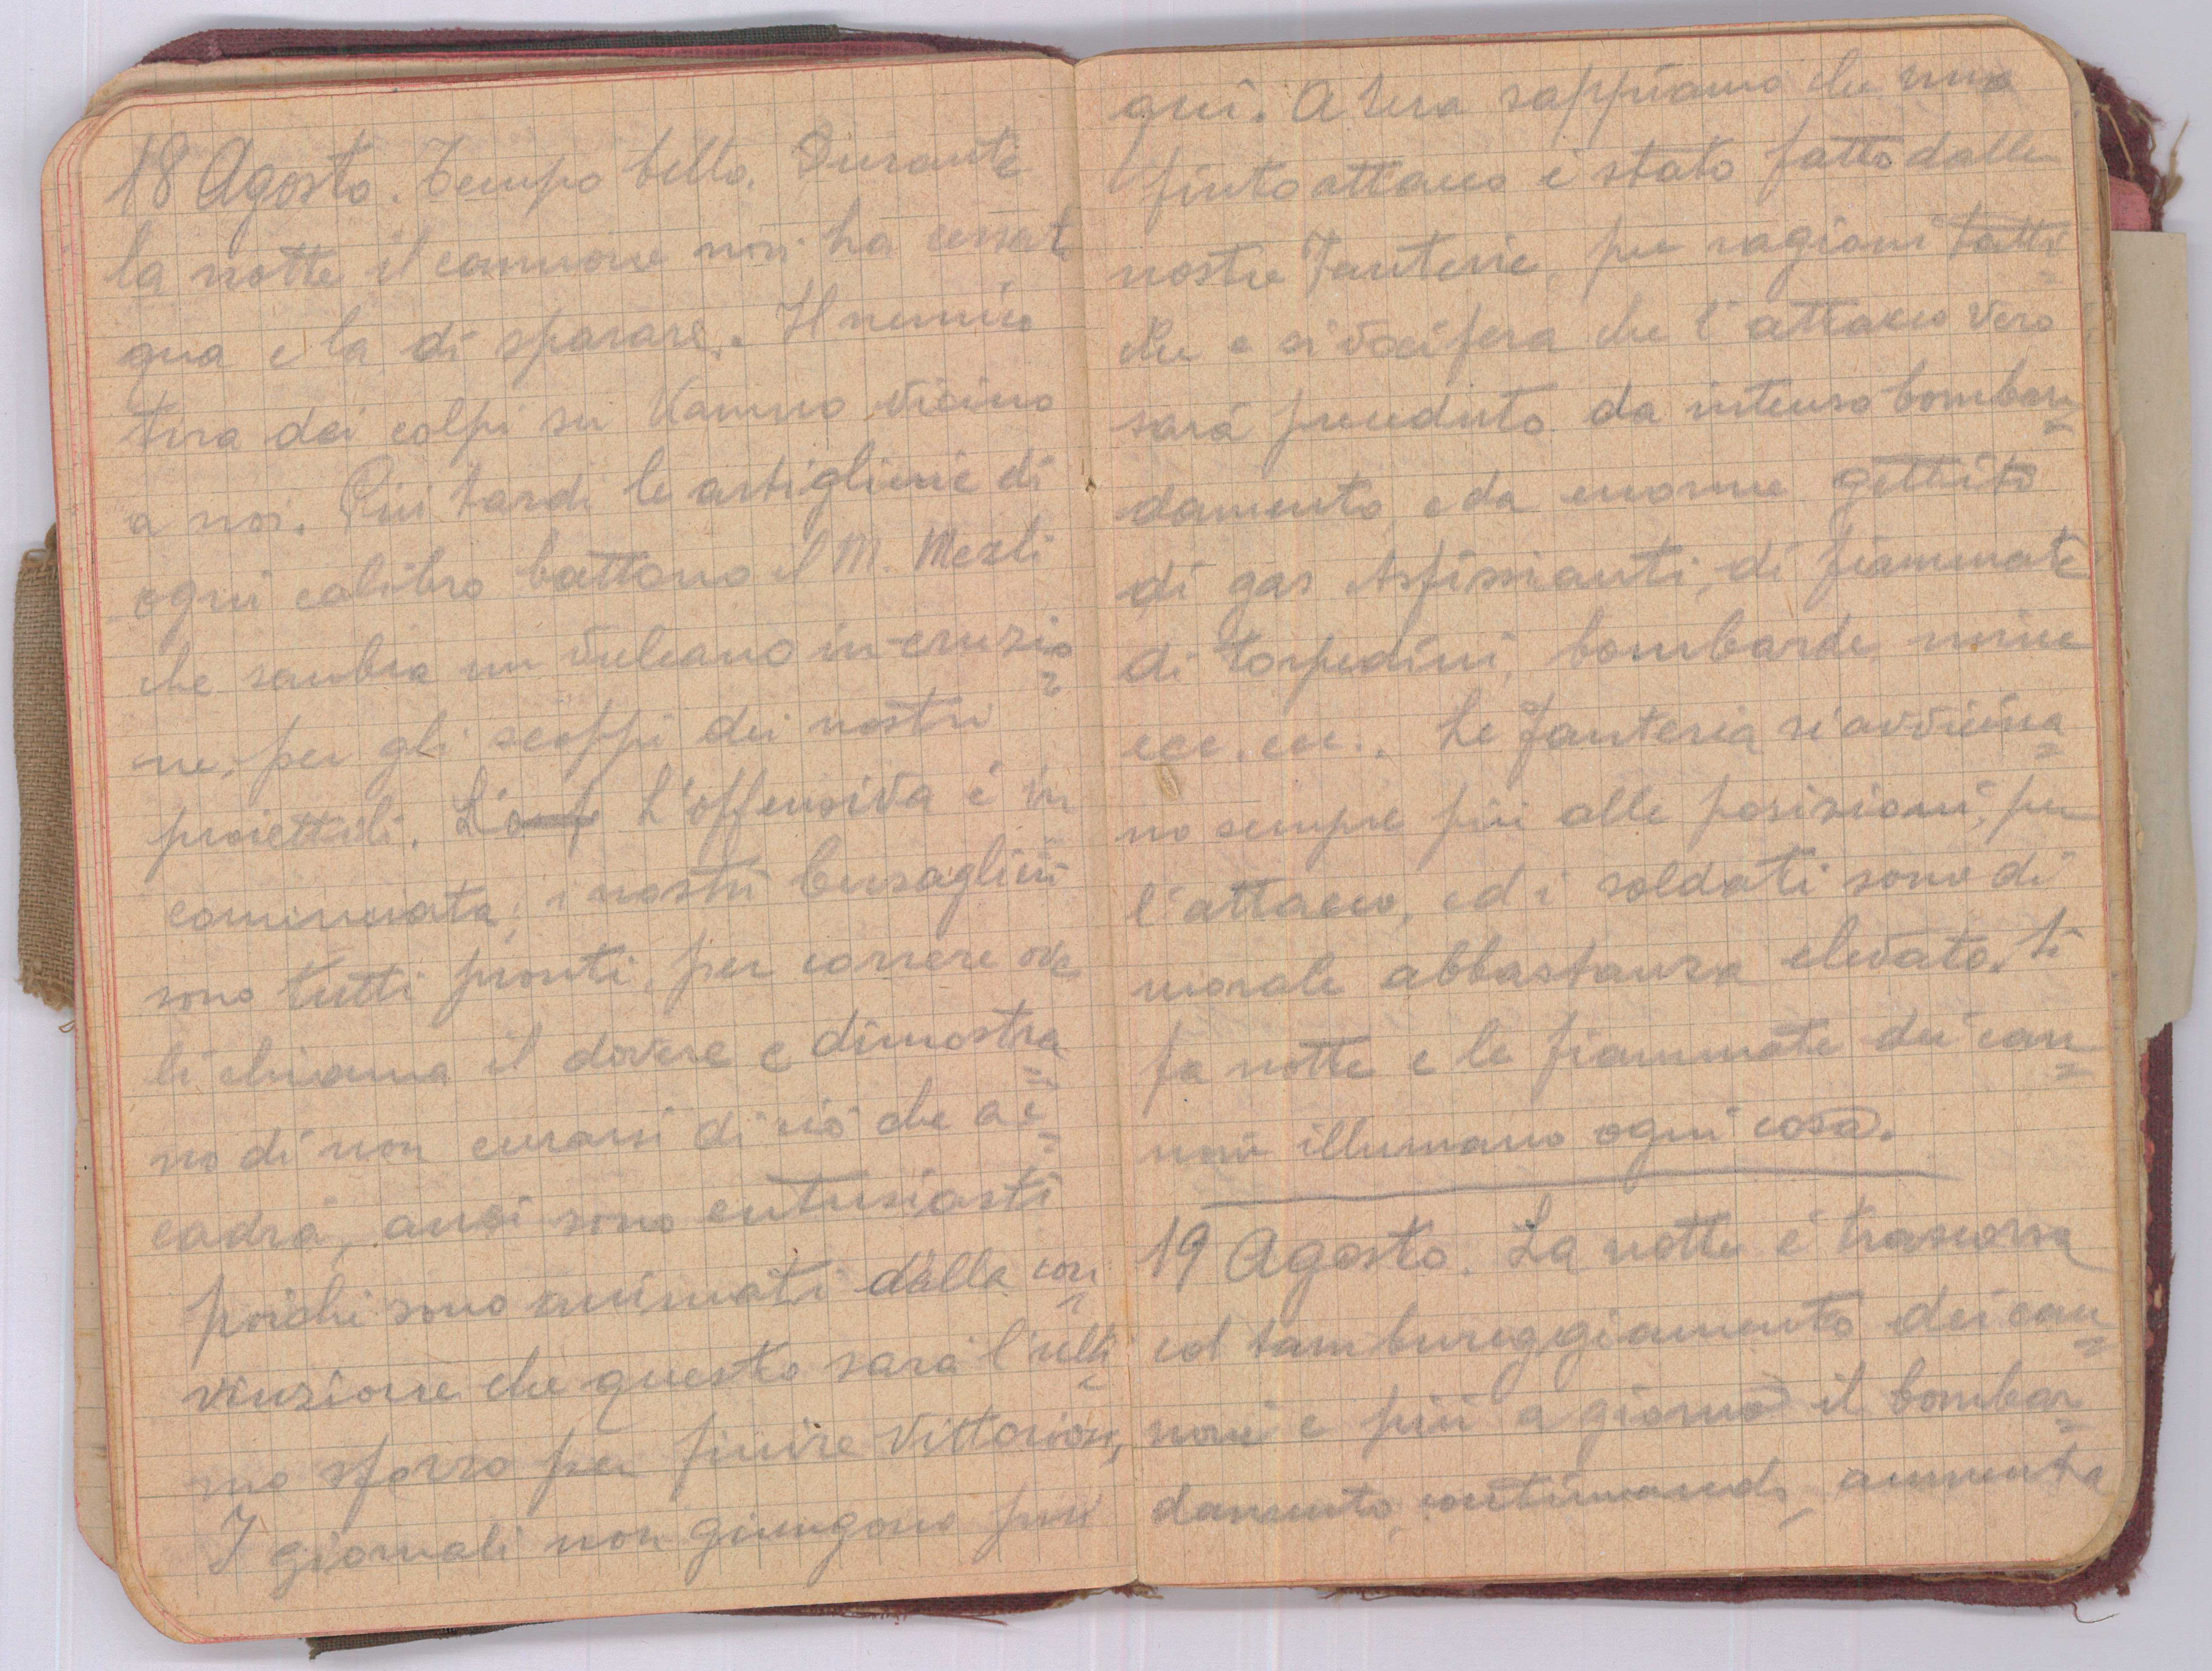 18 Agosto. Tempo bello. Durante
la notte il cannone non ha cessato
qua e la di sparare. Il nemico
tira dei colpi su Kamno vicino
a noi. Più tardi le artiglierie di
ogni calibro battono il M. Merli
che sembra un vulcano in eruzio=
ne, per gli scoppi dei nostri
proiettili. L'offensiva é in
cominciata, i nostri bersaglieri
sono tutti pronti, per correre ove
li chiama il dovere e dimostra=
no di non curarsi di ció che ac=
cadrá, anzi sono entusiasti
poiché sono animati dalla con=
vinzione che questo sará l'ulti=
mo sforzo per finire vittoriosi,
I giornali non giungono più
qui. A sera sappiamo che una
finto attacco é stato fatto dalle
nostre Fanterie, per ragioni tatti=
che e si vocifera che l'attacco vero
sará preceduto da intenso bombar=
damento, e da enorme gettito
di gas Asfissianti, di fiammate
di torpedini, bombarde, mine
ecc. ecc.. Le fanteria si avvicina=
no sempre più alle posizioni, per
l'attacco, ed i soldati sono di
morale abbastanza elevato. Si
fa notte e le fiammate dei can=
noni illumano ogni cosa.
19 Agosto. La notte é trascorsa
col tambureggiamento dei can=
noni e più a giorno il bombar=
damento, continuando, aumenta